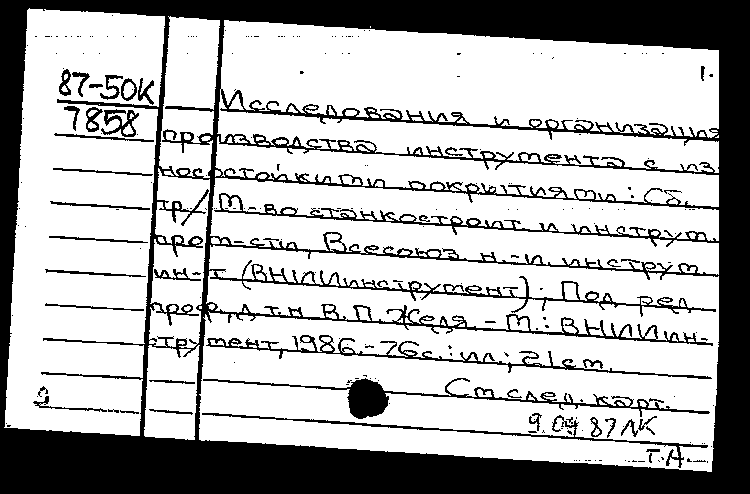 1.
87-50К
7858
Исследования и организация
производства инструмента с из-
носостойкими покрытиями: Сб.
тр/ М-во станкостроит. и инструм.
пром-сти, Всесоюз. н.-и. инструм.
ин-т (ВНИИинструмент); Под ред.
проф., д.т.н. В.П. Жедя. - М.: ВНИИин-
струмент, 1986.-76с.: ил.; 21см.
См. след. карт.
9
9.09.87 ЛК
Т.А.